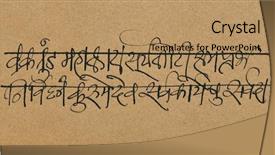 Crystal
Templates for PowerPoint
वक्रतुंड महाकाय सूर्यकोटी समप्रभ
निर्विघ्नं कुरुमेदेव सर्वकार्येषु सर्वदा